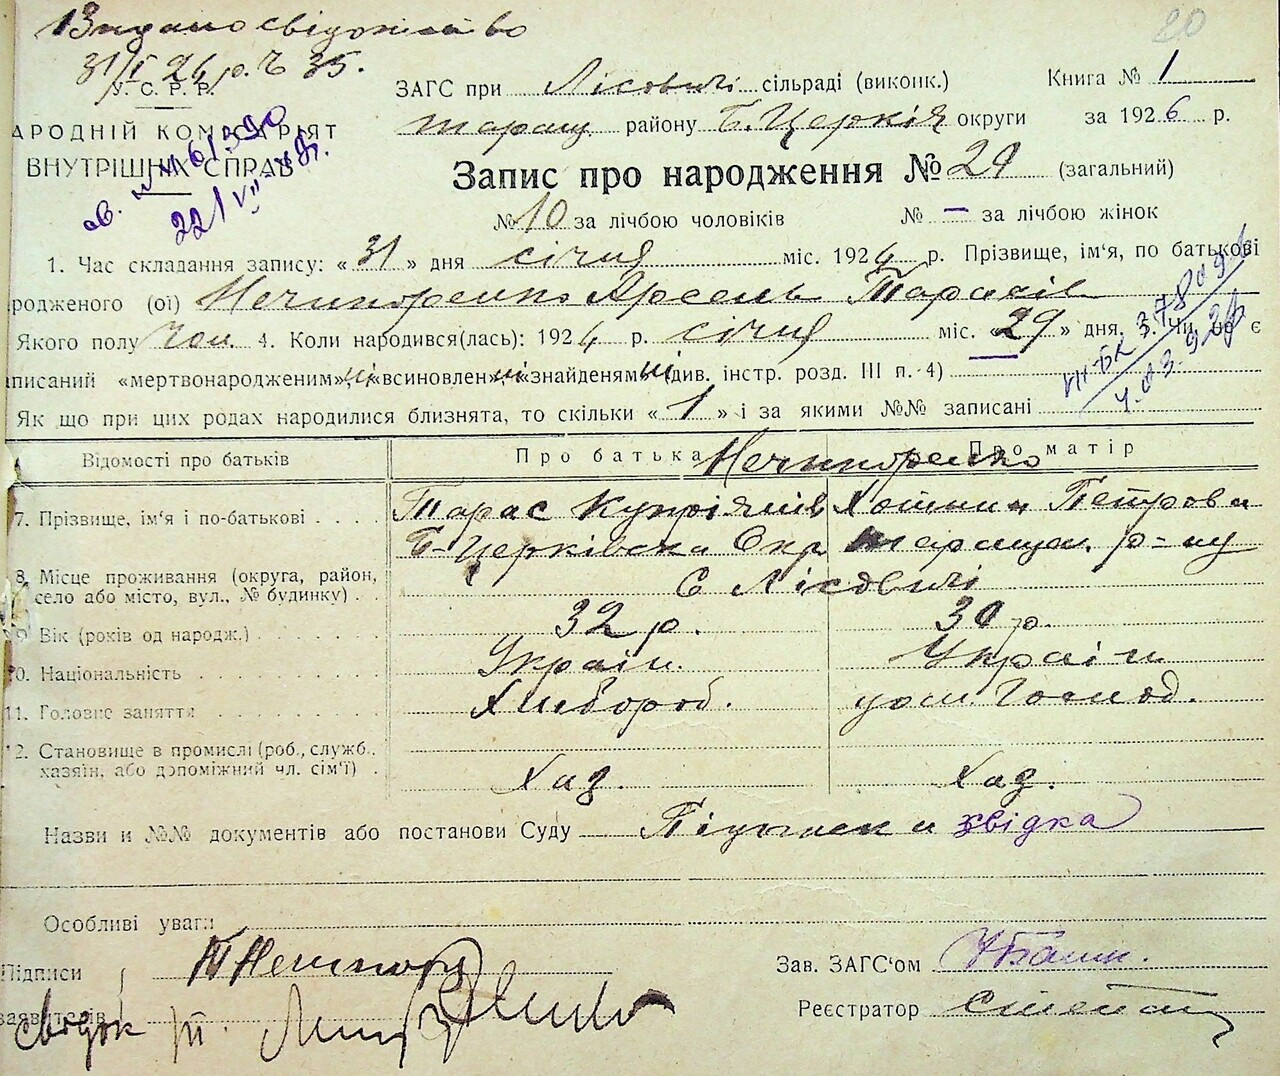 Видано свідоцтво
31/I 26 р. Ч 35.
20
У. С. Р. Р.
АРОДНІЙ КОМІСАРІЯТ
ВНУТРІШНІХ СПРАВ
ЗАГС при Лісовичі сільраді (виконк.) Книга № 1
таращ району Б. Церків округи за 1926 р.
Запис про народження № 29 (загальний)
№ 10 за лічбою чоловіків № — за лічбою жінок
1. Час складання запису: «31» дня січня міс. 1926 р. Прізвище, ім'я, по батькові
родженого (ої) Нечипоренко Арсень Тарасів
Якого полу чол. 4. Коли народився(лась): 1926 р. січня міс. «29» дня. 5. Чи не є
аписаний «мертвонародженим» ні «всиновлен» ні «знайденям» ні (див. інстр. розд. III п. 4)
Як що при цих родах народилися близнята, то скільки «1» і за якими №№ записані
Відомості про батьків Про батька Про матір
Нечипоренко
7. Прізвище, ім'я і по-батькові Тарас Купріянів Хотина Петрова
Б-Церківська Окр Таращан. р-ну
8. Місце проживання (округа, район,
село або місто, вул., № будинку) С Лісовичі
9. Вік (років од народж.) 32 р. 30 р.
10. Національність Україн. Україн
11. Головне заняття Хлібороб. дом. Господ.
12. Становище в промислі (роб., служб.,
хазяїн, або допоміжний чл. сім'ї) Хаз. Хаз.
Назви и №№ документів або постанови Суду Підписка и звідка
Особливі уваги
Підписи
заявителів
свідок
Зав. ЗАГС'ом
Реєстратор